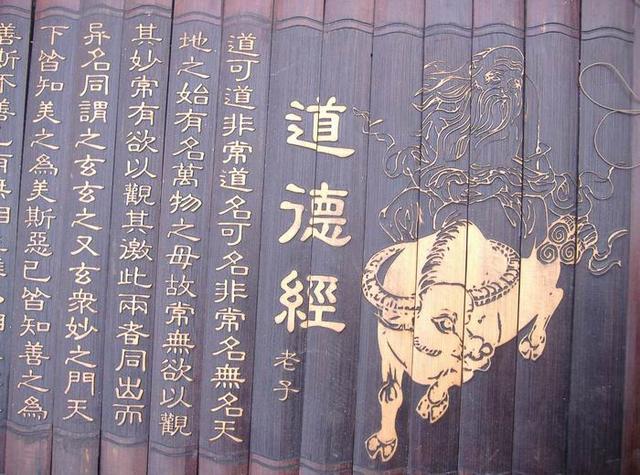 道德經
老子
道可道非常道名可名非常名無名天
地之始有名萬物之母故常無欲以觀
其妙常有欲以觀其邀此兩者同出而
異名同謂之玄玄之又玄衆妙之門天
下皆知美之為美斯惡已皆知善之為
善斯不善已有無相